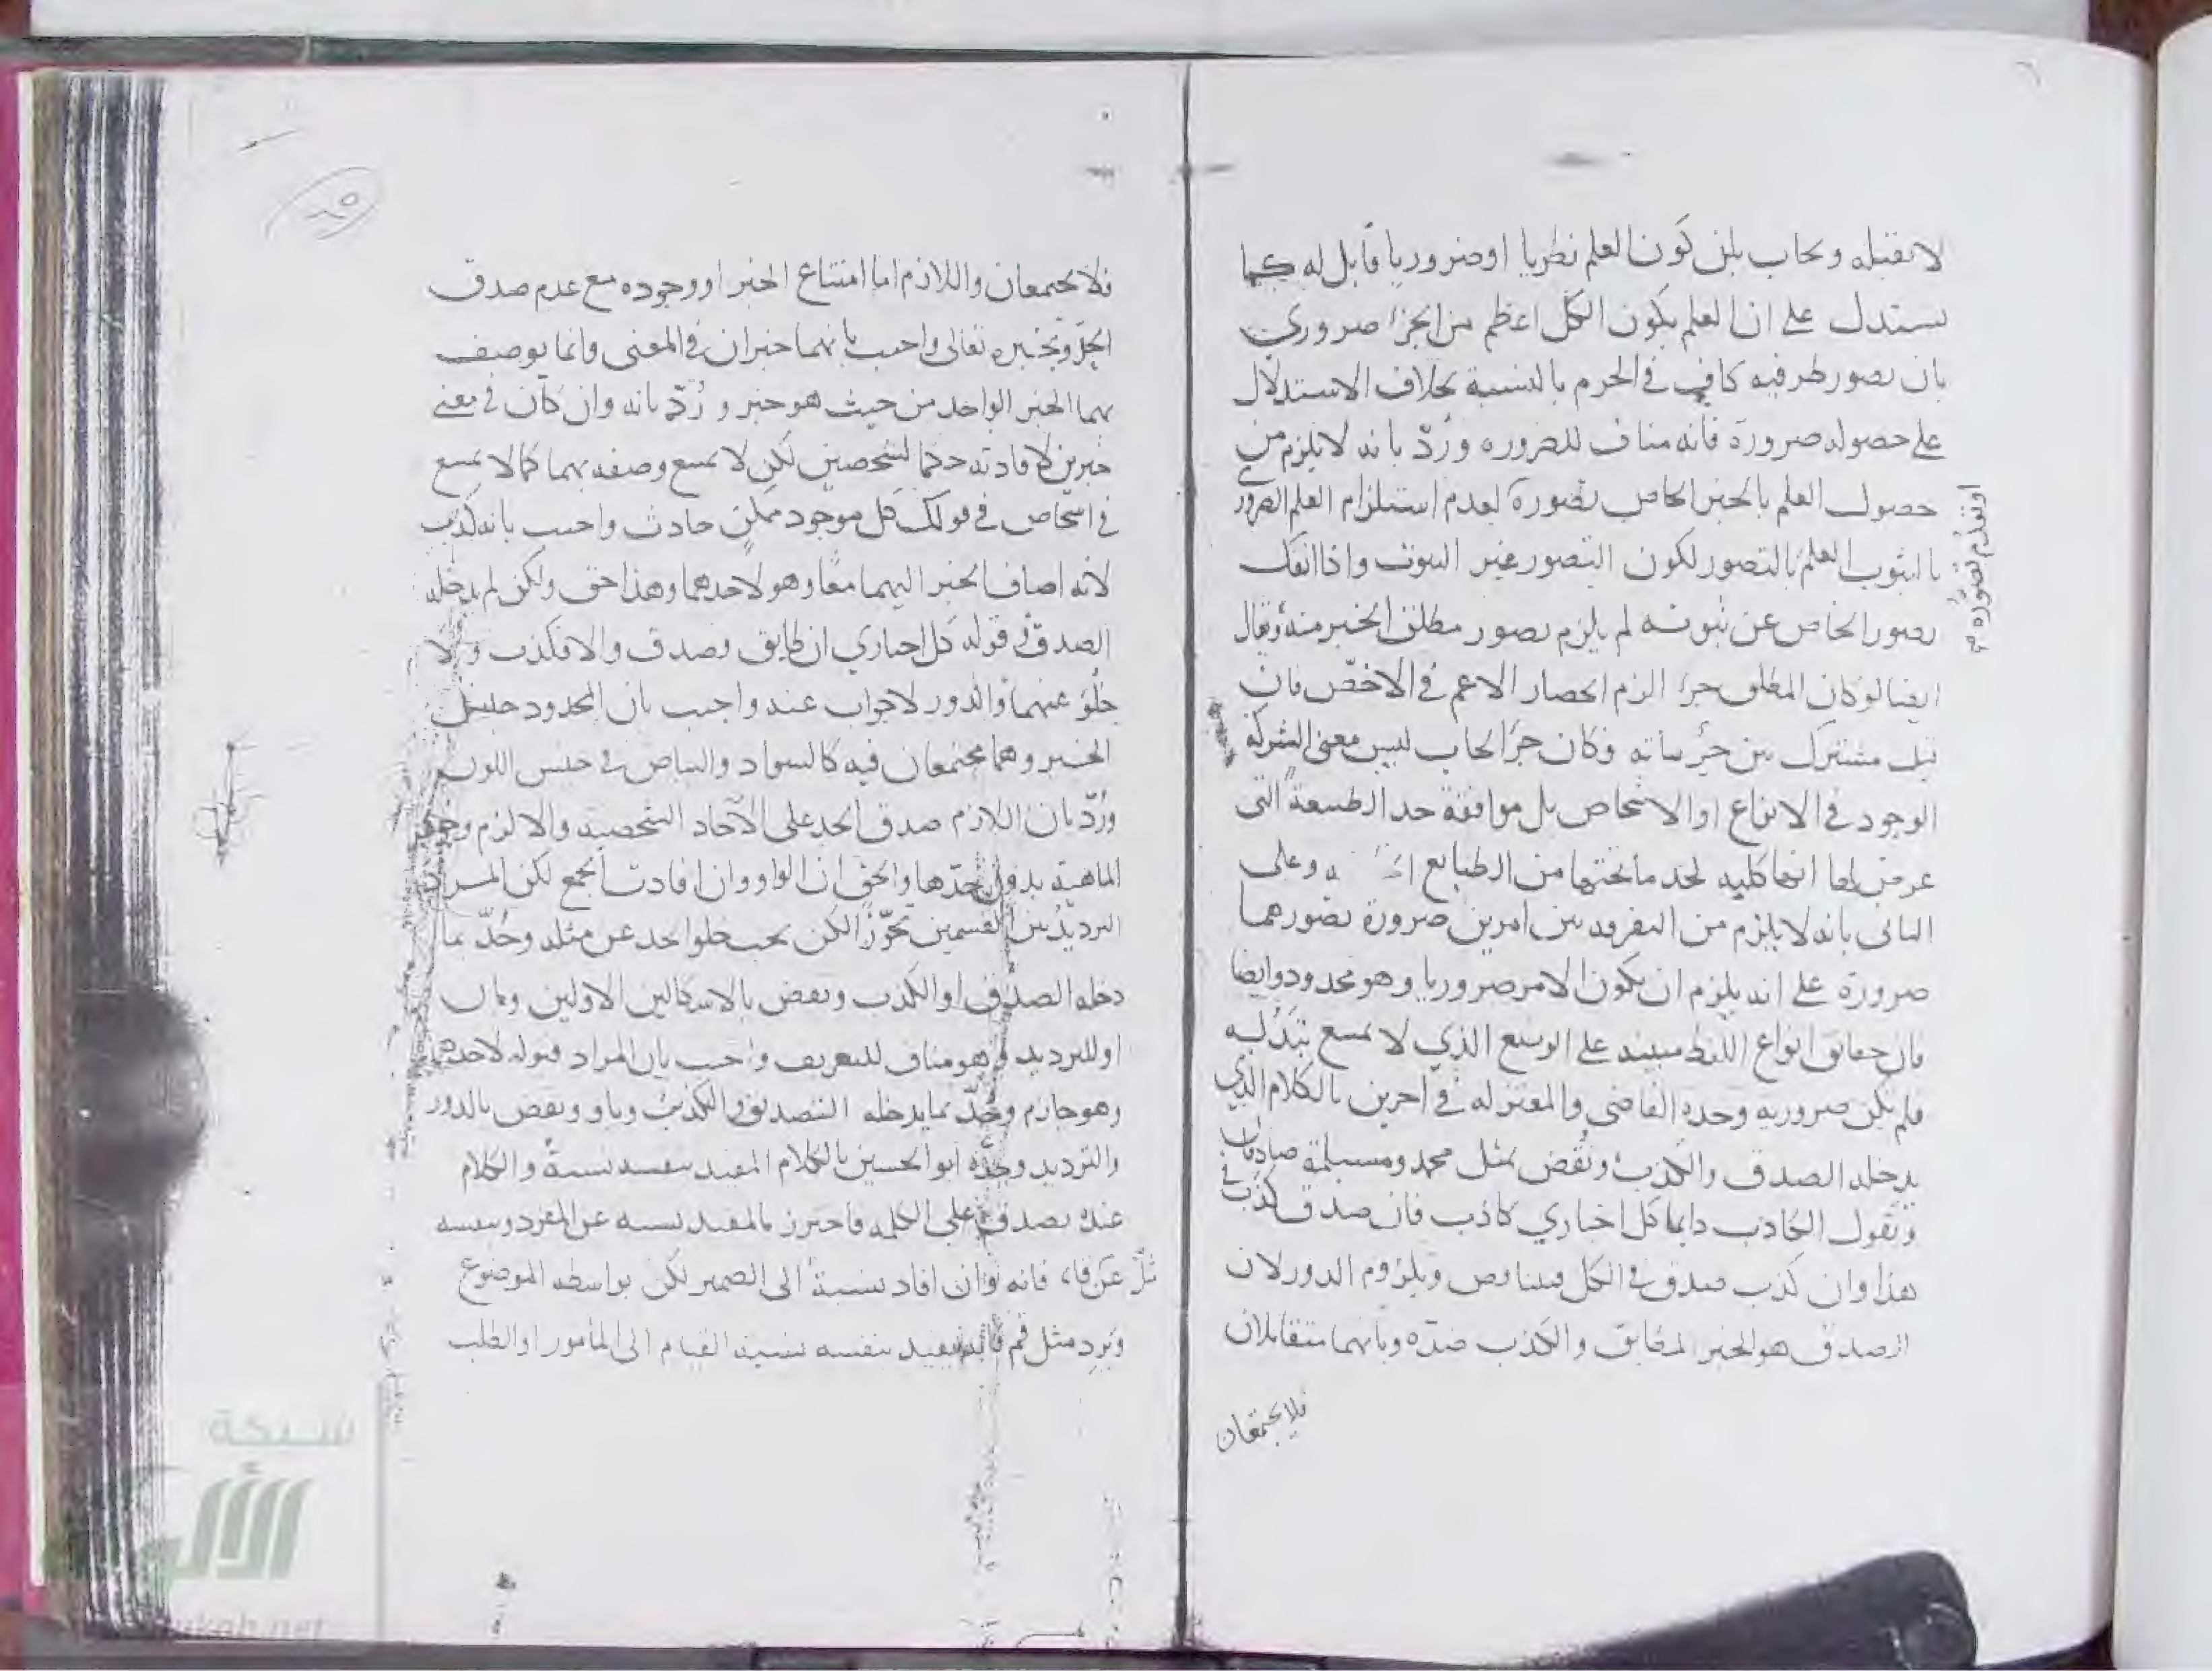 لا تقبله ويجاب بان كون العلم نظريا او ضروريا قابل له كما
يستدل على ان العلم بكون الكل اعظم من الجزء ضروري
بان تصور طرفيه كافي في الجزم بالنسبة بخلاف الاستدلال
على حصوله ضرورة فانه مناف للضروره ورُدّ بانه لا يلزم من
حصول العلم بالخبر الخاص تصوره لعدم استلزام العلم الضروري
او تقدم تصوره
بالثبوت العلم بالتصور لكون التصور غير الثبوت واذا انفك
تصور الخاص عن ثبوته لم يلزم تصور مطلق الخبر منه ويقال
ايضا لو كان المطلق جزءا لزم انحصار الاعم في الاخص فان
قيل مشترك بين جزئياته فكان جزءا اجاب ليس معنى الشركة
الوجود في الانواع او الاشخاص بل موافقة حد الطبيعة التى
عرض لها انها كلية لحد ما تحتها من الطبايع وعلى
الثانى بانه لا يلزم من التفرقه بين امرين ضرورة تصورهما
ضرورة على انه يلزم ان يكون الامر ضروريا وهو محدود وايضا
فان حقايق انواع اللفظ مبينه على الوضع الذي لا يمتنع تبدّله
فلم يكن ضروريه وحده القاضى والمعتزله في اخرين بالكلام الذي
يدخله الصدق والكذب ونُقض بمثل محمد ومسيلمة صادقان
وبقول الكاذب دايما كل اخباري كاذب فان صدق كذب في
هذا وان كذب صدق في الكل فيتناقض وبلزوم الدور لان
الصدق هو الخبر المطابق والكذب ضدّه وبانهما متقابلان
فلا يجتمعان
فلا يجتمعان واللازم اما امتناع الخبر او وجوده مع عدم صدق
الحدّ وبخبره تعالى واجيب بانهما خبران في المعنى وانما يوصف
بهما الخبر الواحد من حيث هو خبر ورُدّ بانه وان كان في معنى
خبرين لافادته حكما لشخصين لكن لا يمنع وصفه بهما كما لا يمنع
في اشخاص في قولك كل موجود ممكن حادث واجيب بانه كذب
لانه اضاف الخبر اليهما معًا وهو لاحدهما وهذا حق ولكن لم يدخله
الصدق في قوله كل اخباري ان طابق فصدق والا فكذب ولا
خُلُوّ عنهما والدور لا جواب عنه واجيب بان المحدود جنس
الخبر وهما مجتمعان فيه كالسواد والبياض في جنس اللون
ورُدّ بان اللازم صدق الحد على الآحاد الشخصية والا لزم وجود
الماهية بدون حدّها والحق ان الواو وان افادت الجمع لكن المراد
الترديد بين القسمين تجوّزًا لكن يجب خلو الحد عن مثله وحُدّ بما
دخله الصدق او الكذب ونقض بالاشكالين الاولين وبان
او للترديد وهو مناف للتعريف واجيب بان المراد قبوله لاحدهما
وهو جازم وحُدّ بما يدخله التصديق والتكذيب وباو ونقض بالدور
والترديد وحدّه ابو الحسين بالكلام المفيد بنفسه نسبةً والكلام
عنده يصدق على الكلمه فاحترز بالمفيد نسبه عن المفرد وبنفسه
عن قام فانه وان افاد نسبةً الى الضمير لكن بواسطه الموضوع
ويَرِد مثل قم فانه يفيد بنفسه نسبة القيام الى المأمور او الطلب
شبكة
الألوكة